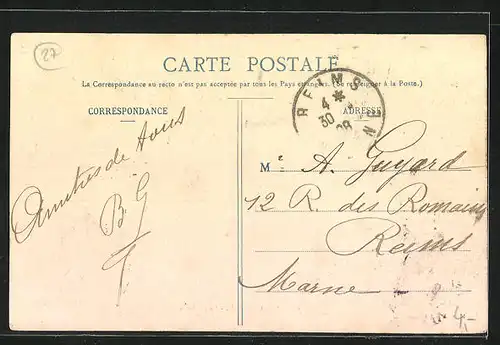 27
CARTE POSTALE
La Correspondance au recto n'est pas acceptée par tous les Pays étrangers. (Se renseigner à la Poste.)
CORRESPONDANCE
ADRESSE
REIMS
4 *
30
Amitiés de tous
B G
M. A. Guyard
12 R. des Romains
Reims
Marne
4,-